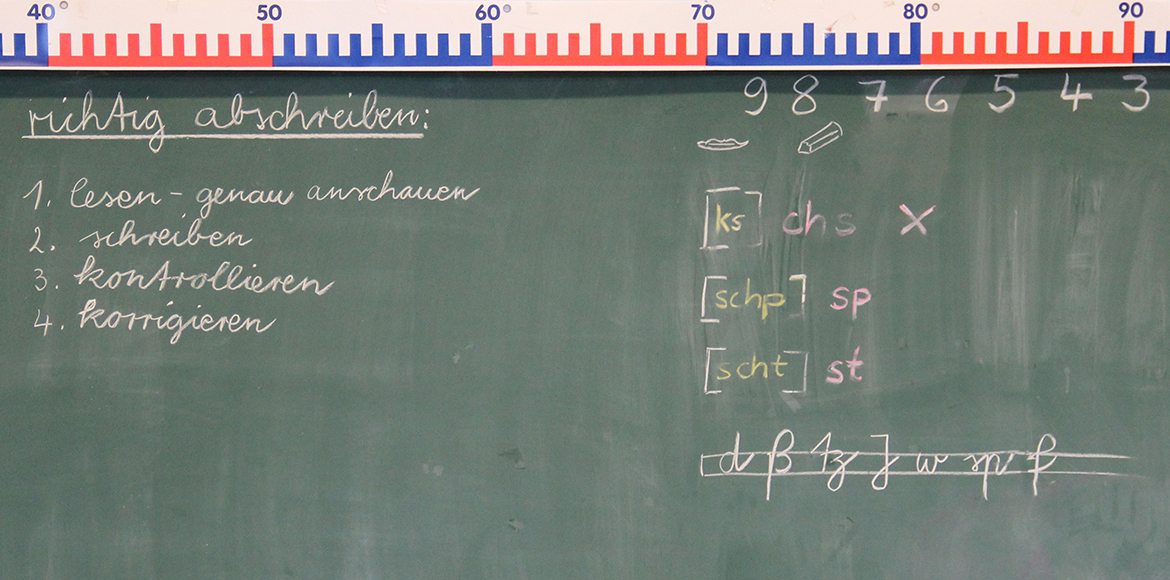 40 50 60 70 80 90
9 8 7 6 5 4 3
richtig abschreiben:
1. lesen - genau anschauen
2. schreiben
3. kontrollieren
4. korrigieren
[ks] chs x
[schp] sp
[scht] st
d ß tz J w sp